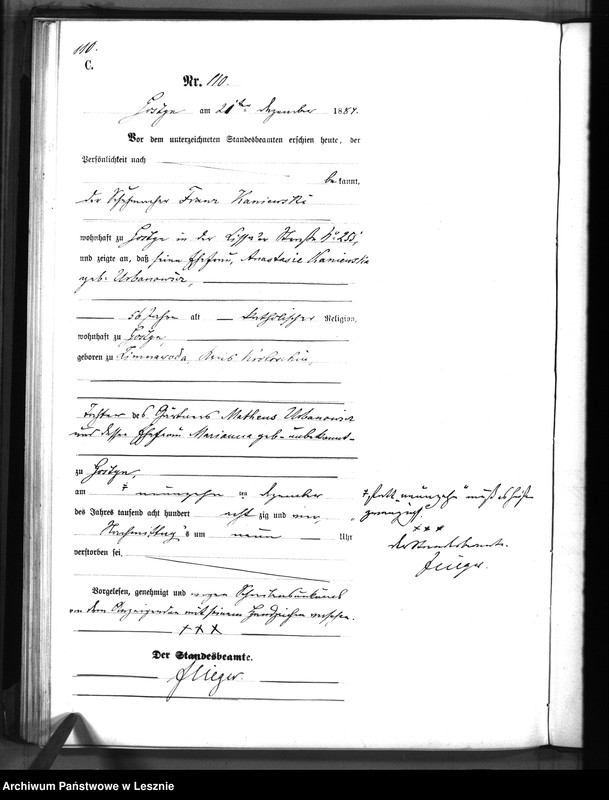 110.
C.
Nr. 110.
Gostyn am 21ten Dezember 1884.
Vor dem unterzeichneten Standesbeamten erschien heute, der
Persönlichkeit nach
be kannt,
der Schuhmacher Franz Kaniewski
wohnhaft zu Gostyn in der Lissa'er Straße No 253,
und zeigte an, daß seine Ehefrau, Anastasie Kaniewska
geb. Urbanowicz,
56 Jahre alt katholischer Religion,
wohnhaft zu Gostyn,
geboren zu Zimnawoda, Kreis
Tochter des Gärtners Matheus Urbanowicz
und dessen Ehefrau Marianna geb. unbekannt
zu Gostyn,
am neunzehn ten Dezember
des Jahres tausend acht hundert acht zig und vier,
Nachmittags um neun Uhr
verstorben sei.
Statt "neunzehn" muß es heißen
"zwanzig".
+++
Der Standesbeamte.
Flieger.
Vorgelesen, genehmigt und wegen Schreibensunkunde
von dem Anzeigenden mit seinem Handzeichen versehen.
+++
Der Standesbeamte.
Flieger.
Archiwum Państwowe w Lesznie